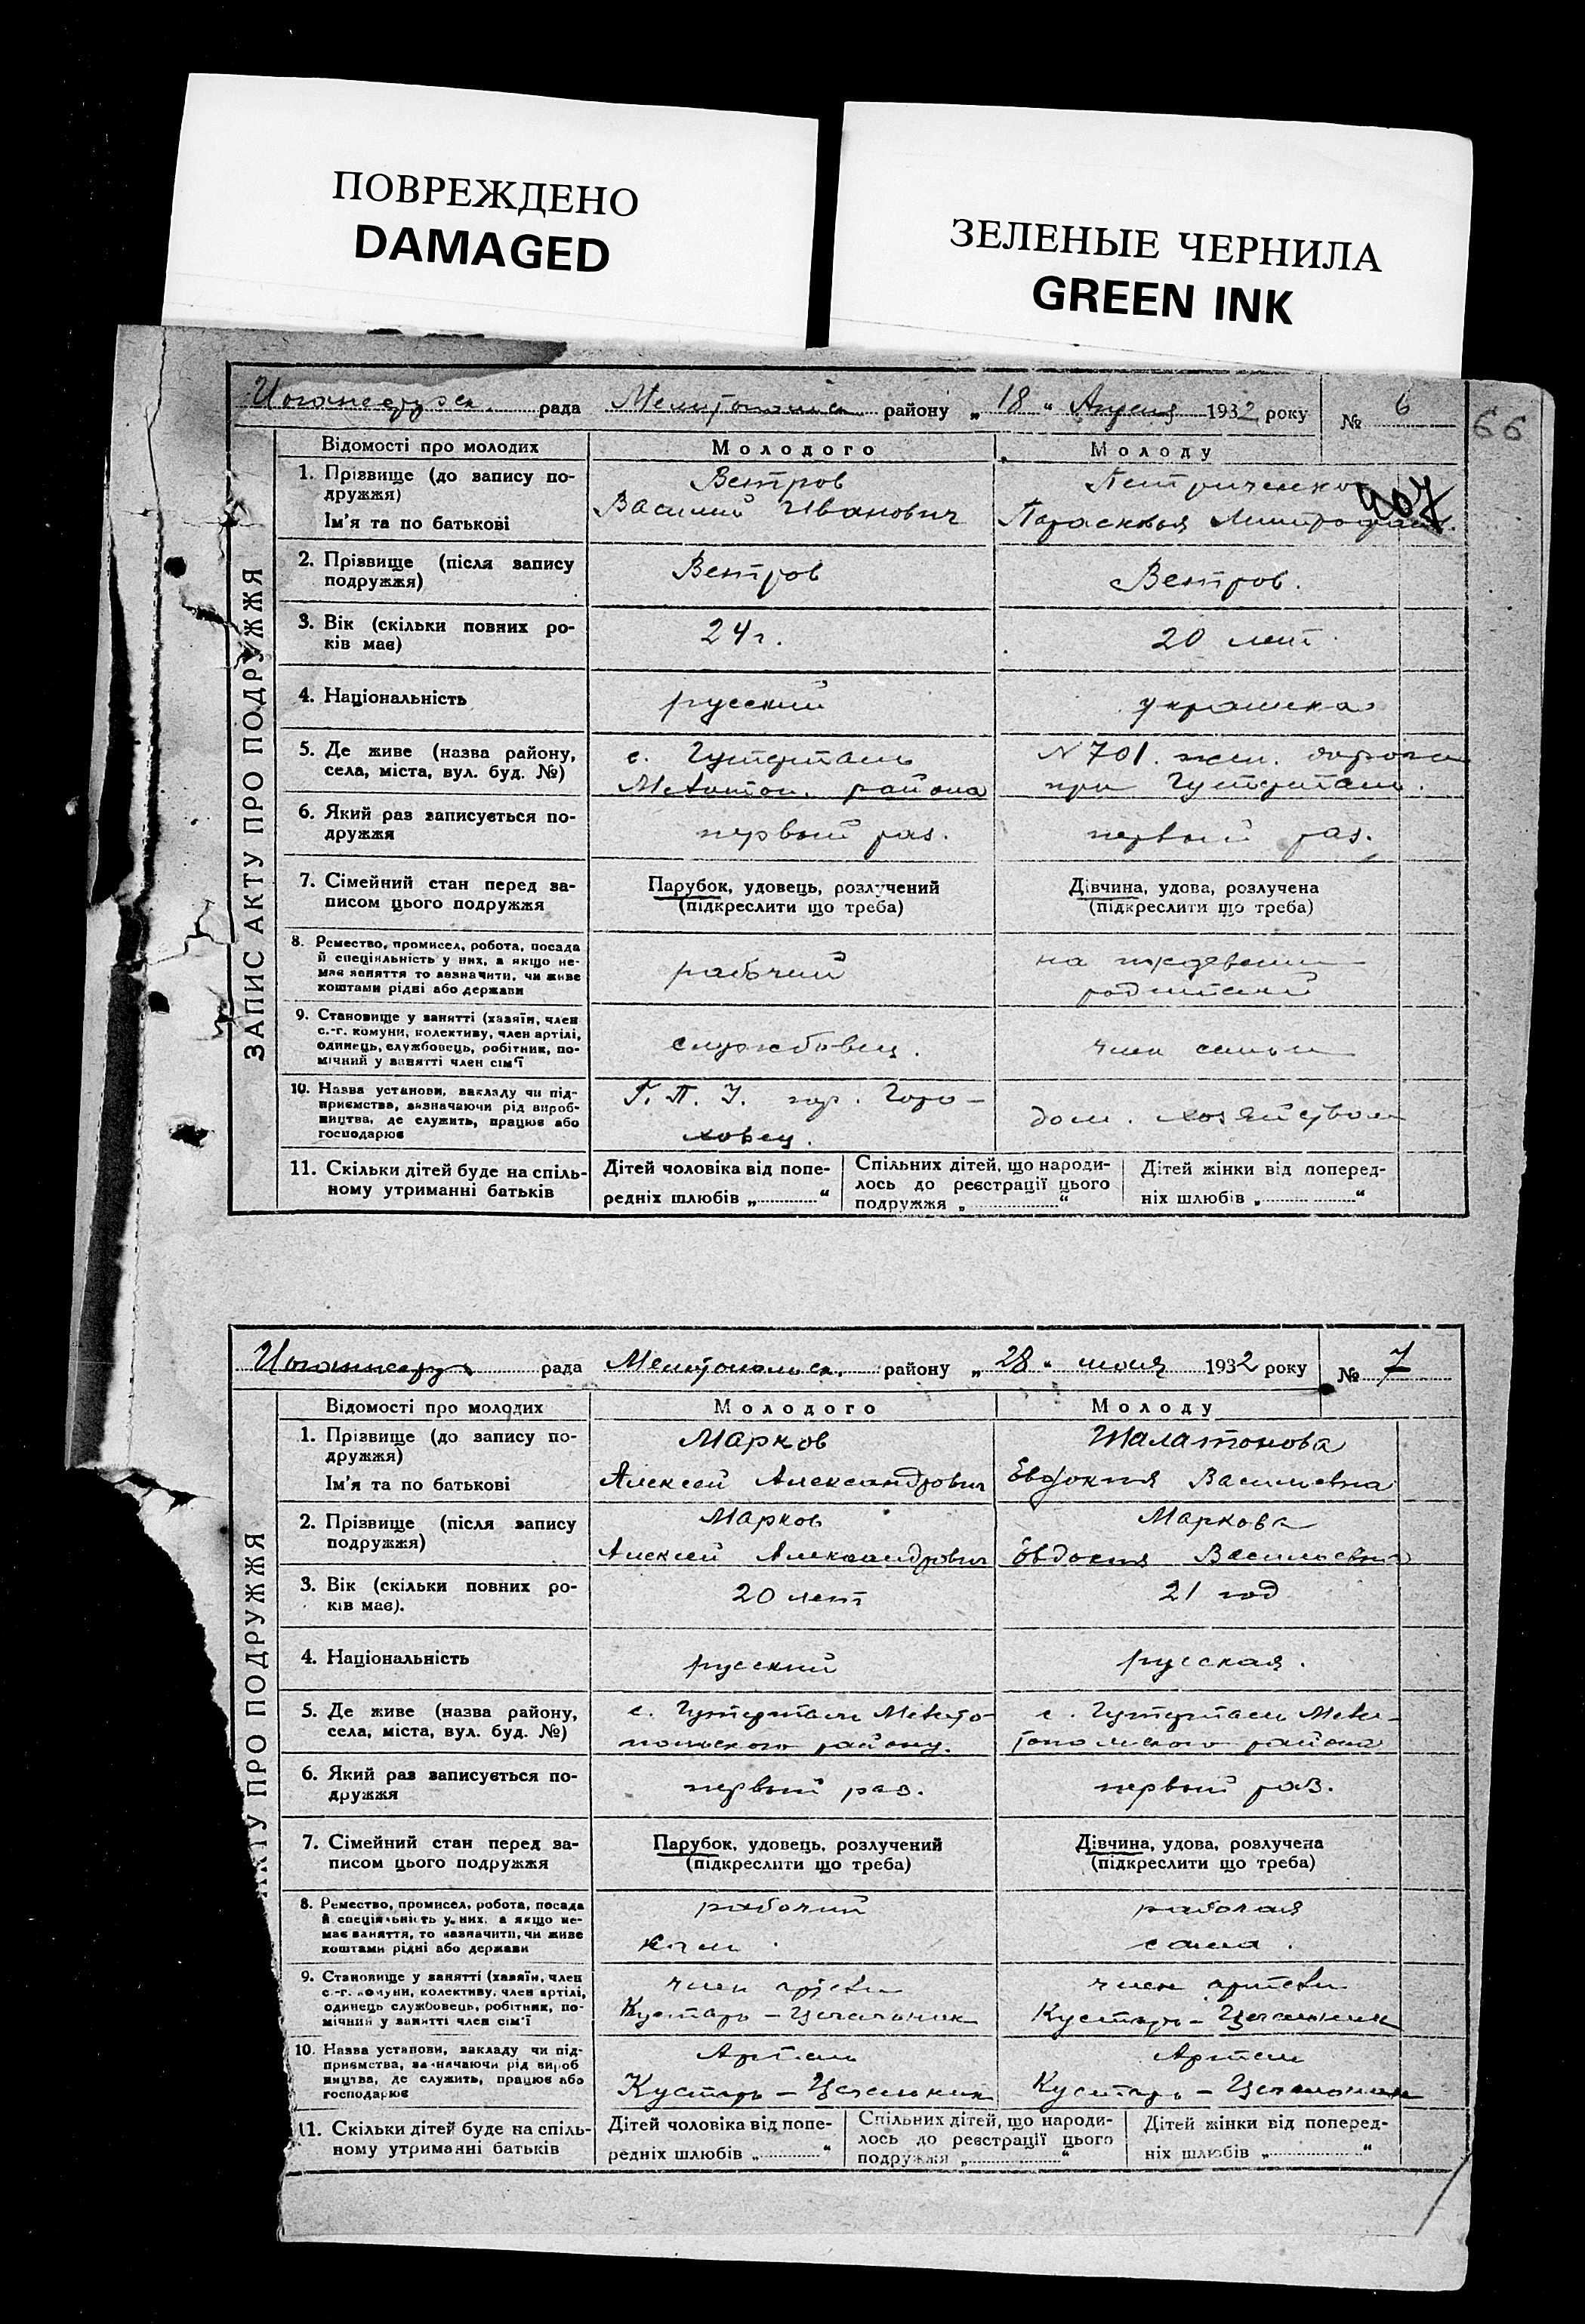 ПОВРЕЖДЕНО
DAMAGED
ЗЕЛЕНЫЕ ЧЕРНИЛА
GREEN INK
рада Мелитопольск району „ 18 “ Апреля 1932 року № 6
66
ЗАПИС АКТУ ПРО ПОДРУЖЖЯ
Відомості про молодих Молодого Молоду
1. Прізвище (до запису по-
дружжя)
Ім'я та по батькові
Ветров
Василий Иванович
Петриченко
Парасковья
2. Прізвище (після запису
подружжя)
Ветров
Ветров.
3. Вік (скільки повних ро-
ків має)
24 г.
20 лет
4. Національність
русский
украинка
5. Де живе (назва району,
села, міста, вул. буд. №)
с. Гутерталь
Мелитоп. района
N 701. жел. дороги
при Гутерталь.
6. Який раз записується по-
дружжя
первый раз.
первый раз.
7. Сімейний стан перед за-
писом цього подружжя
Парубок, удовець, розлучений
(підкреслити що треба)
Дівчина, удова, розлучена
(підкреслити що треба)
8. Ремество, промисел, робота, посада
й спеціяльність у них, а якщо не-
має заняття то зазначити, чи живе
коштами рідні або держави
рабочий
на иждевении
родителей
9. Становище у занятті (хазяїн, член
с.-г. комуни, колективу, член артілі,
одинець, службовець, робітник, по-
мічний у занятті член сім'ї
службовец.
член семьи
10. Назва установи, закладу чи під-
приємства, зазначаючи рід вироб-
ництва, де служить, працює або
господарює
Г. П. У. гор. Горо-
ховец.
дом. хозяйством
11. Скільки дітей буде на спіль-
ному утриманні батьків
Дітей чоловіка від попе-
редніх шлюбів „ “
Спільних дітей, що народи-
лось до реєстрації цього
подружжя „ “
Дітей жінки від поперед-
ніх шлюбів „ “
рада Мелитопольск. району „ 28 “ 1932 року № 7
АКТУ ПРО ПОДРУЖЖЯ
Відомості про молодих Молодого Молоду
1. Прізвище (до запису по-
дружжя)
Ім'я та по батькові
Марков
Алексей Александрович
Шалатонова
Евдокия Васильевна
2. Прізвище (після запису
подружжя)
Марков
Алексей Александрович
Маркова
Евдокия Васильевна
3. Вік (скільки повних ро-
ків має).
20 лет
21 год
4. Національність
русский
русская.
5. Де живе (назва району,
села, міста, вул. буд. №)
с. Гутерталь Мелито-
польского району.
с. Гутерталь Мели-
топольского района
6. Який раз записується по-
дружжя
первый раз.
первый раз.
7. Сімейний стан перед за-
писом цього подружжя
Парубок, удовець, розлучений
(підкреслити що треба)
Дівчина, удова, розлучена
(підкреслити що треба)
8. Ремество, промисел, робота, посада
й спеціяльність у них, а якщо не-
має заняття, то зазначити, чи живе
коштами рідні або держави
рабочий
рабочая
сама.
9. Становище у занятті (хазяїн, член
с.-г. комуни, колективу, член артілі,
одинець службовець, робітник, по-
мічний у занятті член сім'ї
член артели
Кустарь –
член артели
Кустарь –
10. Назва установи, закладу чи під-
приємства, зазначаючи рід вироб
ництва, де служить, працює або
господарює
Артель
Кустарь –
Артель
Кустарь –
11. Скільки дітей буде на спіль-
ному утриманні батьків
Дітей чоловіка від попе-
редніх шлюбів „ “
Спільних дітей, що народи-
лось до реєстрації цього
подружжя „ “
Дітей жінки від поперед-
ніх шлюбів „ “